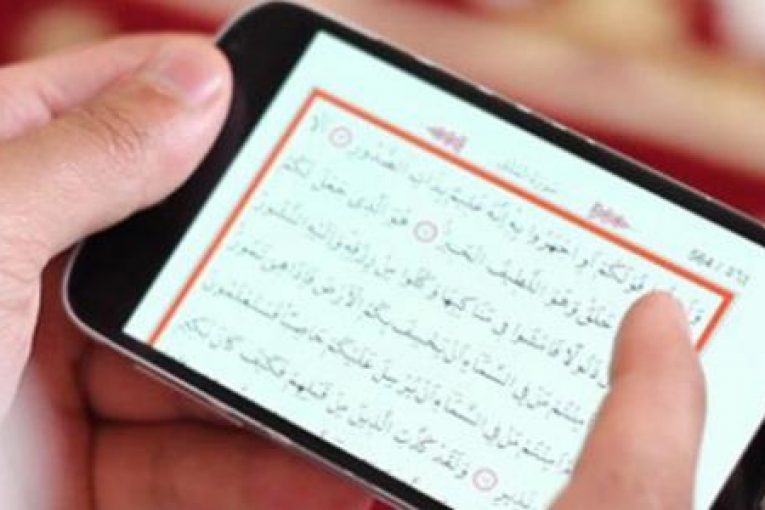 سورة الملك
564
قَوْلَكُمْ أَوِ اجْهَرُوا بِهِ إِنَّهُ عَلِيمٌ بِذَاتِ الصُّدُورِ أَلَا
خَلَقَ وَهُوَ اللَّطِيفُ الْخَبِيرُ هُوَ الَّذِي جَعَلَ لَكُمُ
ذَلُولًا فَامْشُوا فِي مَنَاكِبِهَا وَكُلُوا مِن رِّزْقِهِ وَإِلَيْهِ النُّشُورُ
مَّن فِي السَّمَاءِ أَن يَخْسِفَ بِكُمُ الْأَرْضَ فَإِذَا هِيَ تَمُورُ
مَّن فِي السَّمَاءِ أَن يُرْسِلَ عَلَيْكُمْ حَاصِبًا فَسَتَعْلَمُونَ
نَذِيرِ وَلَقَدْ كَذَّبَ الَّذِينَ مِن قَبْلِهِمْ فَكَيْفَ كَانَ نَكِيرِ